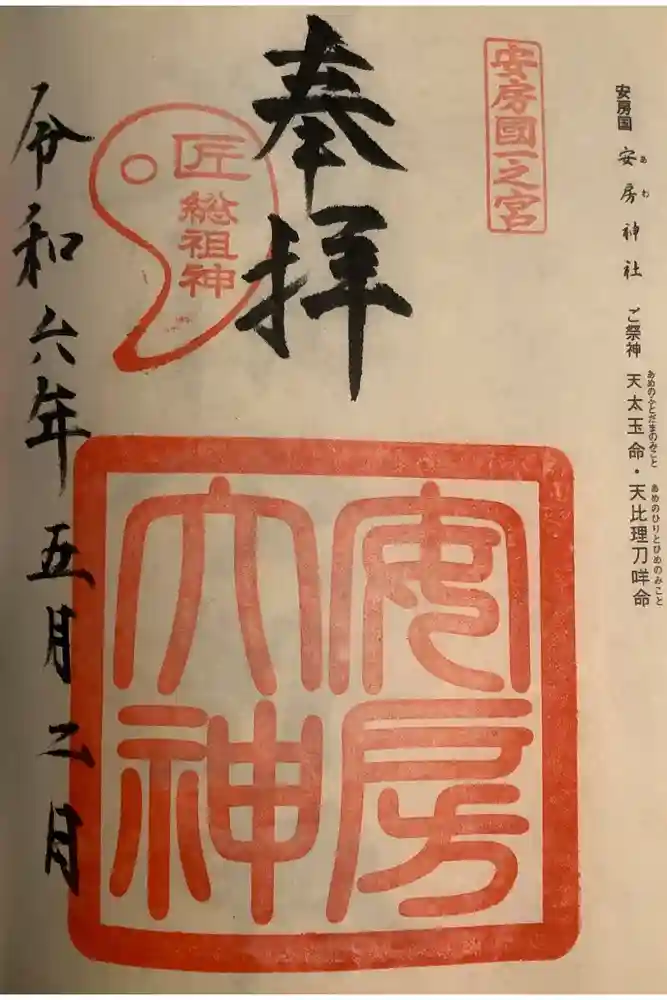 安房国 安房神社 ご祭神 天太玉命・天比理刀咩命
あわ
あめのふとだまのみこと
あめのひりとひめのみこと
安房國一之宮
奉拝
匠
総祖神
安房
大神
令和六年五月二月